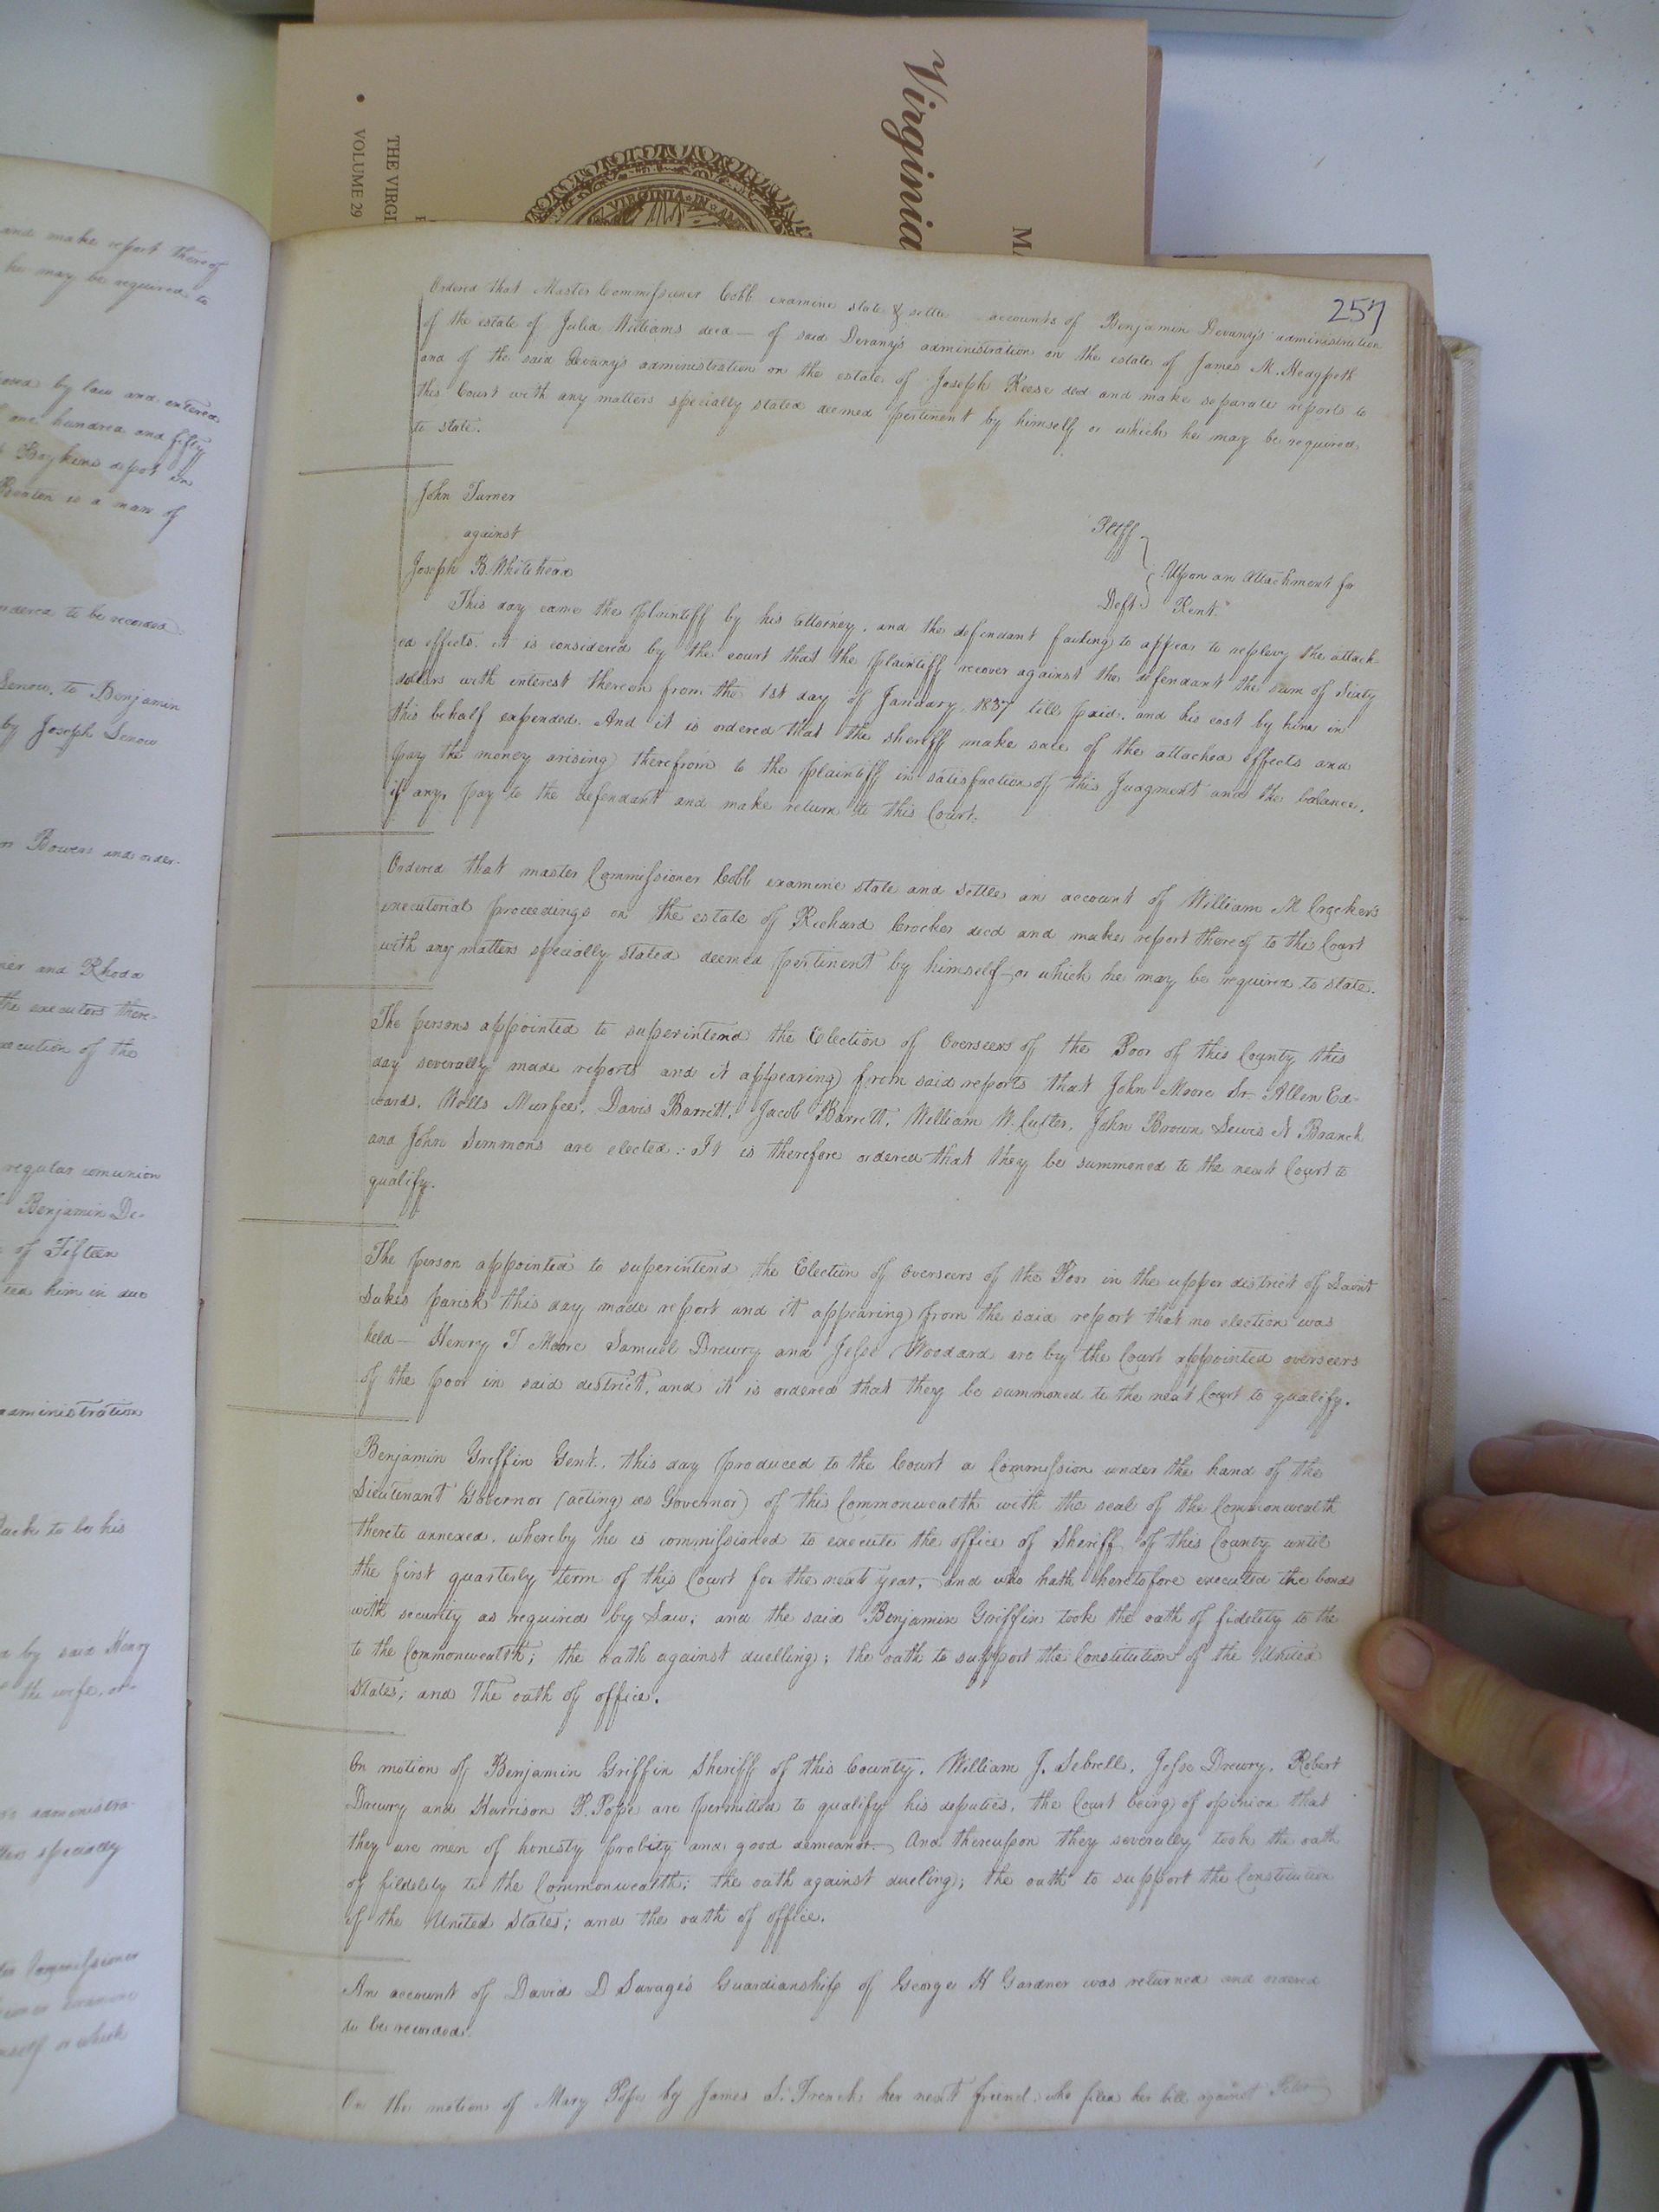 Virginia
MA
THE VIRGI
VOLUME 29
VIRGINIA IN
and make report thereof
he may be required to
by law and entered
one hundred and fifty
Boykins depot in
is a man of
ordered to be recorded.
Lenow, to Benjamin
by Joseph Lenow
Bowers and order-
and Rhoda
the executors there-
execution of the
regular comunion
Benjamin De-
of Fifteen
him in due
administration
to be his
by said Henry
the wife, or
administra-
specially
Commissioner
examine
or which
257
Ordered that Master Commissioner Cobb examine state & settle accounts of Benjamin Devany's administration
of the estate of Julia Williams decd — of said Devany's administration on the estate of James M. Hedgpeth
and of the said Devany's administration on the estate of Joseph Reese decd and make separate reports to
this Court with any matters specially stated deemed pertinent by himself or which he may be required
to state.
John Turner Pltff
against
Upon an Attachment for
Joseph B. Whitehead Deft. Rent.
This day came the plaintiff by his attorney, and the defendant failing to appear to replevy the attach-
ed effects. it is considered by the court that the plaintiff recover against the defendant the sum of Sixty
dollars with interest thereon from the 1st day of January 1837 till paid, and his cost by him in
this behalf expended. And it is ordered that the sheriff make sale of the attached effects and
pay the money arising therefrom to the plaintiff in satisfaction of this Judgment and the balance,
if any, pay to the defendant and make return to this Court.
Ordered that master Commissioner Cobb examine state and settle an account of William M Crocker's
executorial proceedings on the estate of Richard Crocker decd and make report thereof to this Court
with any matters specially stated deemed pertinent by himself or which he may be required to state.
The persons appointed to superintend the Election of Overseers of the Poor of this County this
day severally made reports and it appearing from said reports that John Moore Sr. Allen Ed-
wards, Wells Murfee, Davis Barrett, Jacob Barrett, William W. Cutler, John Brown Lewis N Branch
and John Simmons are elected: It is therefore ordered that they be summoned to the next Court to
qualify.
The person appointed to superintend the Election of Overseers of the Poor in the upper district of Saint
Lukes parish this day made report and it appearing from the said report that no election was
held — Henry T Moore Samuel Drewry and Jesse Woodard are by the Court appointed overseers
of the poor in said district, and it is ordered that they be summoned to the next Court to qualify.
Benjamin Griffin Gent. this day produced to the Court a Commission under the hand of the
Lieutenant Governor (acting as Governor) of this Commonwealth with the seal of the Commonwealth
thereto annexed, whereby he is commissioned to execute the office of Sheriff of this County until
the first quarterly term of this Court for the next year, and who hath heretofore executed the bonds
with security as required by Law, and the said Benjamin Griffin took the oath of fidelity to the
to the Commonwealth; the oath against duelling; the oath to support the Constitution of the United
States; and The oath of office.
On motion of Benjamin Griffin Sheriff of this County, William J. Sebrell, Jesse Drewry, Robert
Drewry and Harrison P. Pope are permitted to qualify his deputies, the Court being of opinion that
they are men of honesty probity and good demeanor. And thereupon they severally took the oath
of fidelity to the Commonwealth; the oath against dueling; the oath to support the Constitution
of the United States; and the oath of office.
An account of David D Savage's Guardianship of George H Gardner was returned and ordered
to be recorded.
On the motion of Mary Pope by James S. French her next friend, who filed her bill against Peter